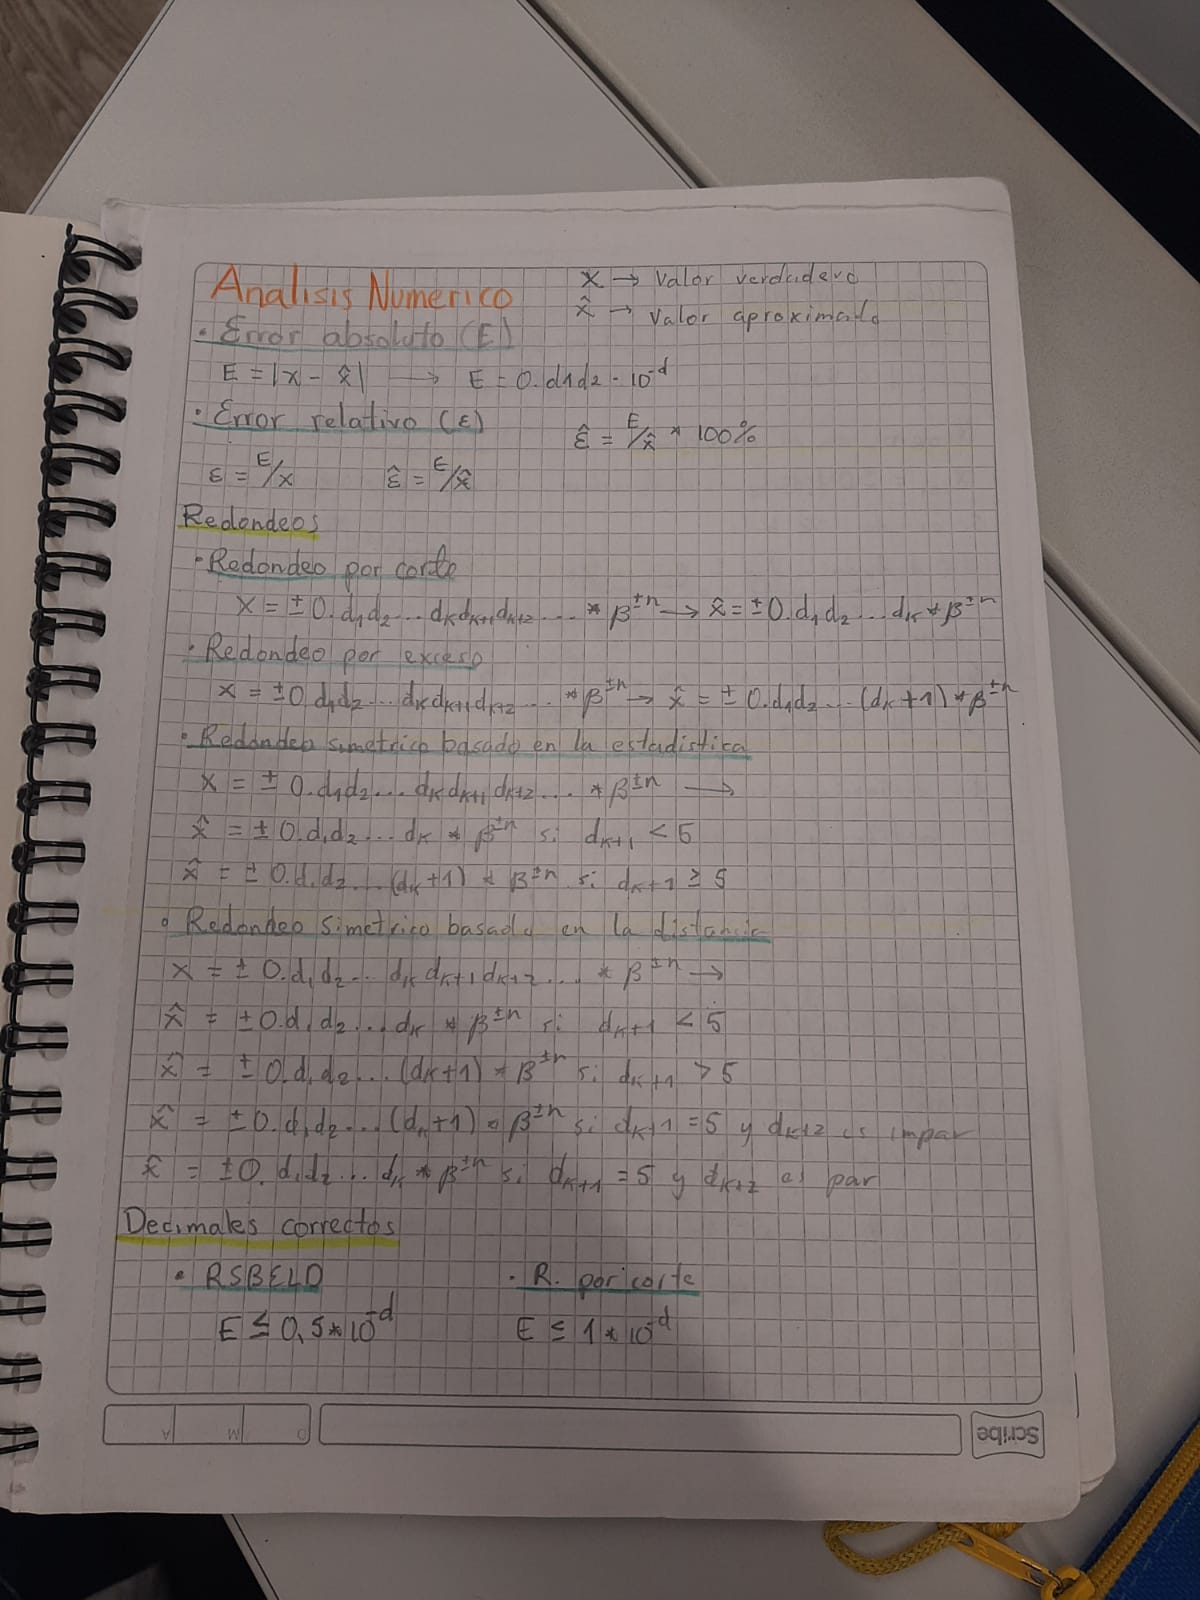 Analisis Numerico
x → Valor verdadero
x̂ → Valor aproximado
• Error absoluto (E)
E = |x - x̂| → E = 0.d1d2 · 10^-d
• Error relativo (ε)
ε̂ = E/x̂ * 100%
ε = E/x ε̂ = E/x̂
Redondeos
• Redondeo por corte
X = ±0.d₁d₂...dₖdₖ₊₁dₖ₊₂... * β^±n → x̂ = ±0.d₁d₂...dₖ * β^±n
• Redondeo por exceso
x = ±0.d₁d₂...dₖdₖ₊₁dₖ₊₂... * β^±n → x̂ = ±0.d₁d₂...(dₖ+1) * β^±n
• Redondeo simetrico basado en la estadistica
x = ±0.d₁d₂...dₖdₖ₊₁dₖ₊₂... * β^±n →
x̂ = ±0.d₁d₂...dₖ * β^±n si dₖ₊₁ < 5
x̂ = ±0.d₁d₂...(dₖ+1) * β^±n si dₖ₊₁ ≥ 5
• Redondeo simetrico basado en la distancia
x = ±0.d₁d₂...dₖdₖ₊₁dₖ₊₂... * β^±n →
x̂ = ±0.d₁d₂...dₖ * β^±n si dₖ₊₁ < 5
x̂ = ±0.d₁d₂...(dₖ+1) * β^±n si dₖ₊₁ > 5
x̂ = ±0.d₁d₂...(dₖ+1) * β^±n si dₖ₊₁ = 5 y dₖ₊₂ es impar
x̂ = ±0.d₁d₂...dₖ * β^±n si dₖ₊₁ = 5 y dₖ₊₂ es par
Decimales correctos
• RSBELD • R. por corte
E ≤ 0,5 * 10^-d E ≤ 1 * 10^-d
A M D
Scribe